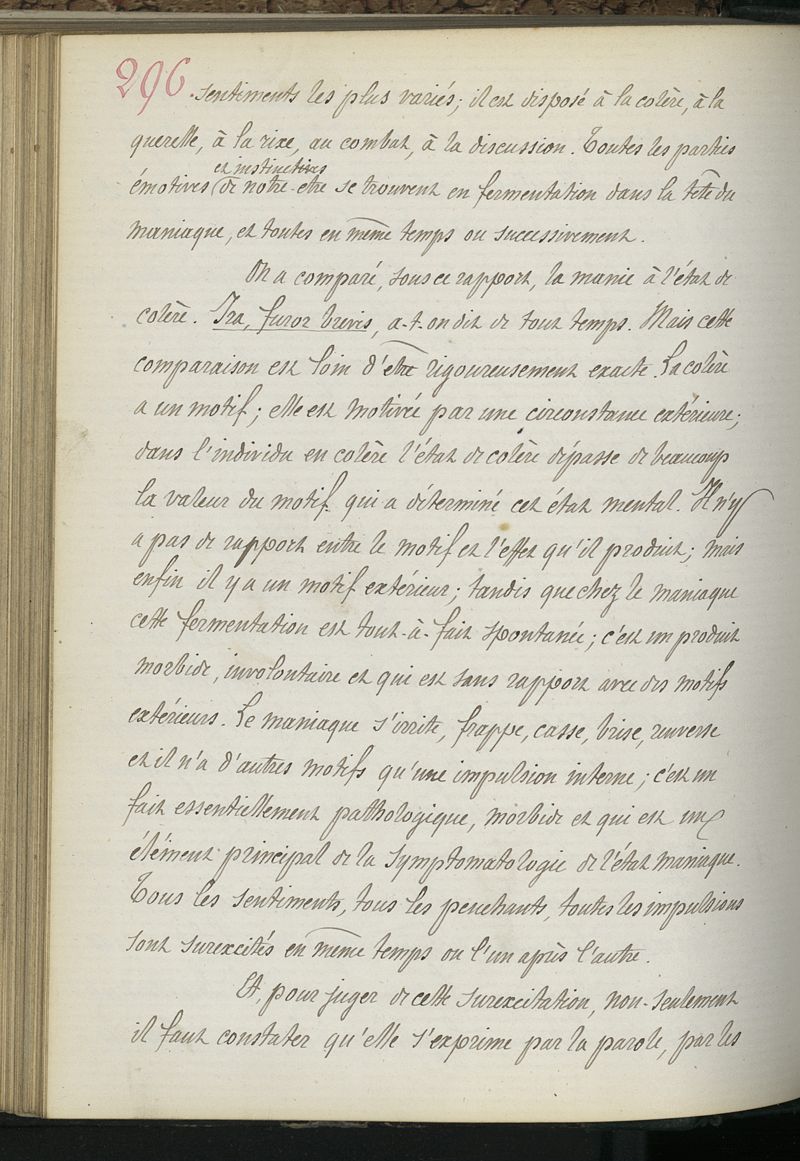 296.
sentiments les plus variés; il est disposé à la colère, à la
querelle, à la rixe, au combat, à la discussion. Toutes les parties
et instinctives
émotives (de notre être se trouvent en fermentation dans la tête du
maniaque, et toutes en même temps ou successivement.
On a comparé, sous ce rapport, la manie à l'état de
colère. Ira, furor brevis, a-t-on dit de tout temps. Mais cette
comparaison est loin d'être rigoureusement exacte. La colère
a un motif; elle est motivée par une circonstance extérieure;
dans l'individu en colère l'état de colère dépasse de beaucoup
la valeur du motif qui a déterminé cet état mental. Il n'y
a pas de rapport entre le motif et l'effet qu'il produit; mais
enfin il y a un motif extérieur; tandis que chez le maniaque
cette fermentation est tout-à-fait spontanée; c'est un produit
morbide, involontaire et qui est sans rapport avec des motifs
extérieurs. Le maniaque s'irrite, frappe, casse, brise, renverse
et il n'a d'autres motifs qu'une impulsion interne; c'est un
fait essentiellement pathologique, morbide et qui est un
élément principal de la symptomatologie de l'état maniaque.
Tous les sentiments, tous les penchants, toutes les impulsions
sont surexcités en même temps ou l'un après l'autre.
Et, pour juger de cette surexcitation, non-seulement
il faut constater qu'elle s'exprime par la parole, par les